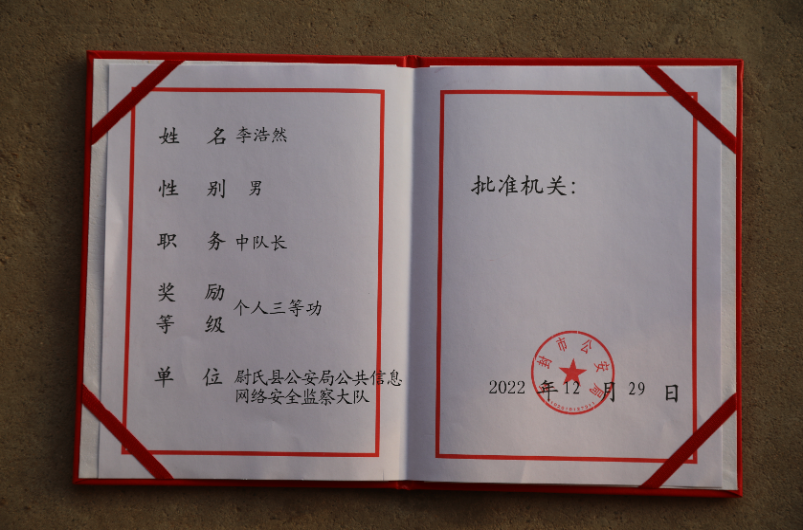 姓 名 李浩然
性 别 男
职 务 中队长
奖 励
等 级
个人三等功
单 位 尉氏县公安局公共信息
网络安全监察大队
批准机关：
封市公安局
2022 年 12 月 29 日